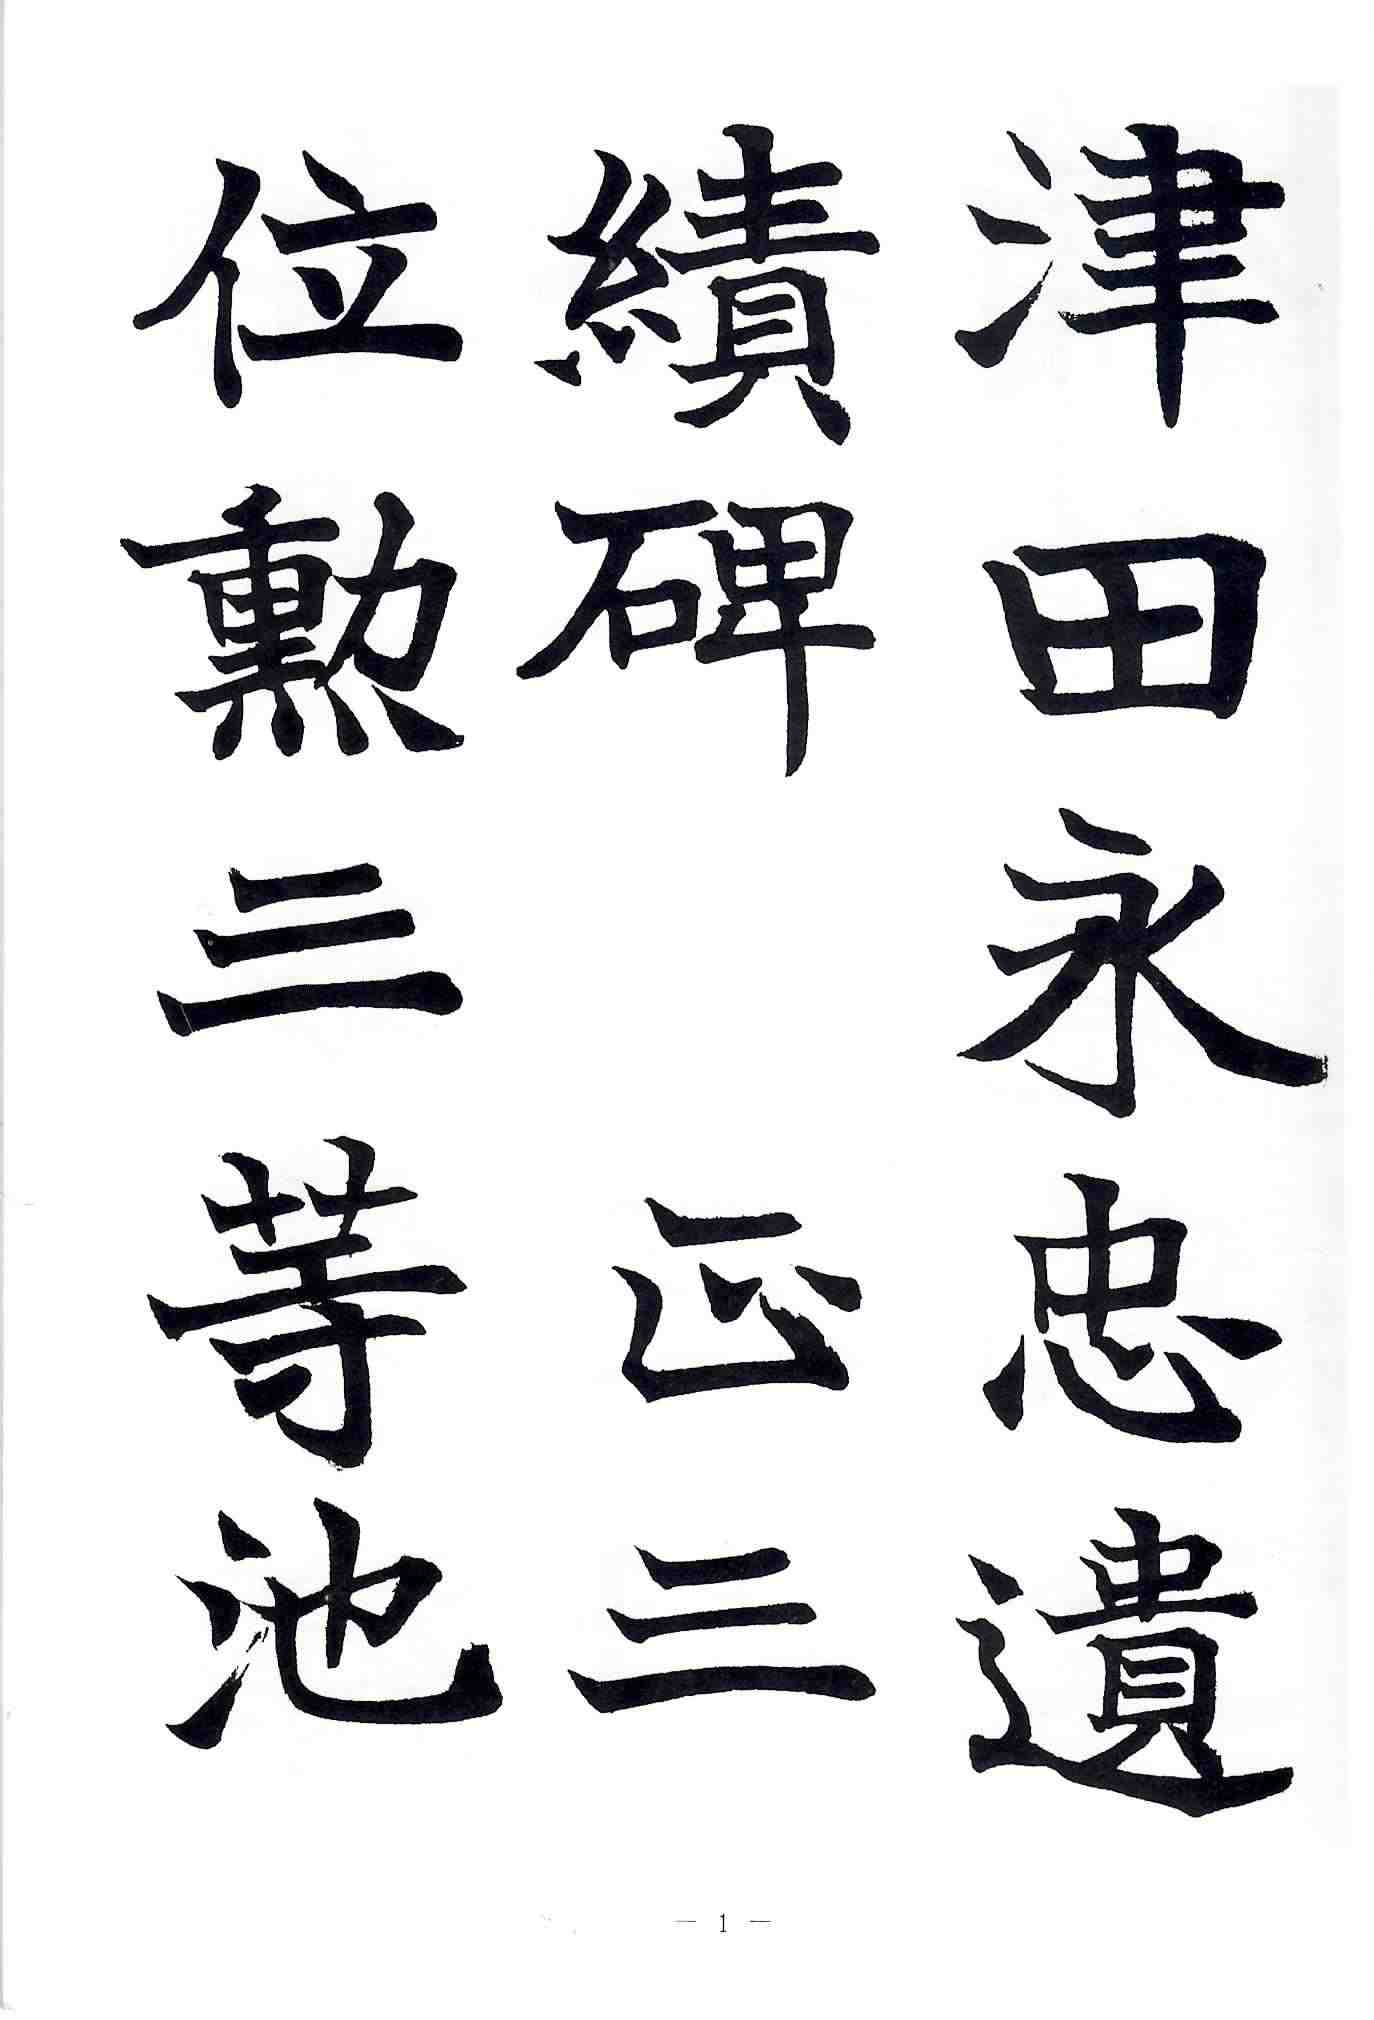 津田永忠遺
績碑　正三
位勲三等池
— 1 —